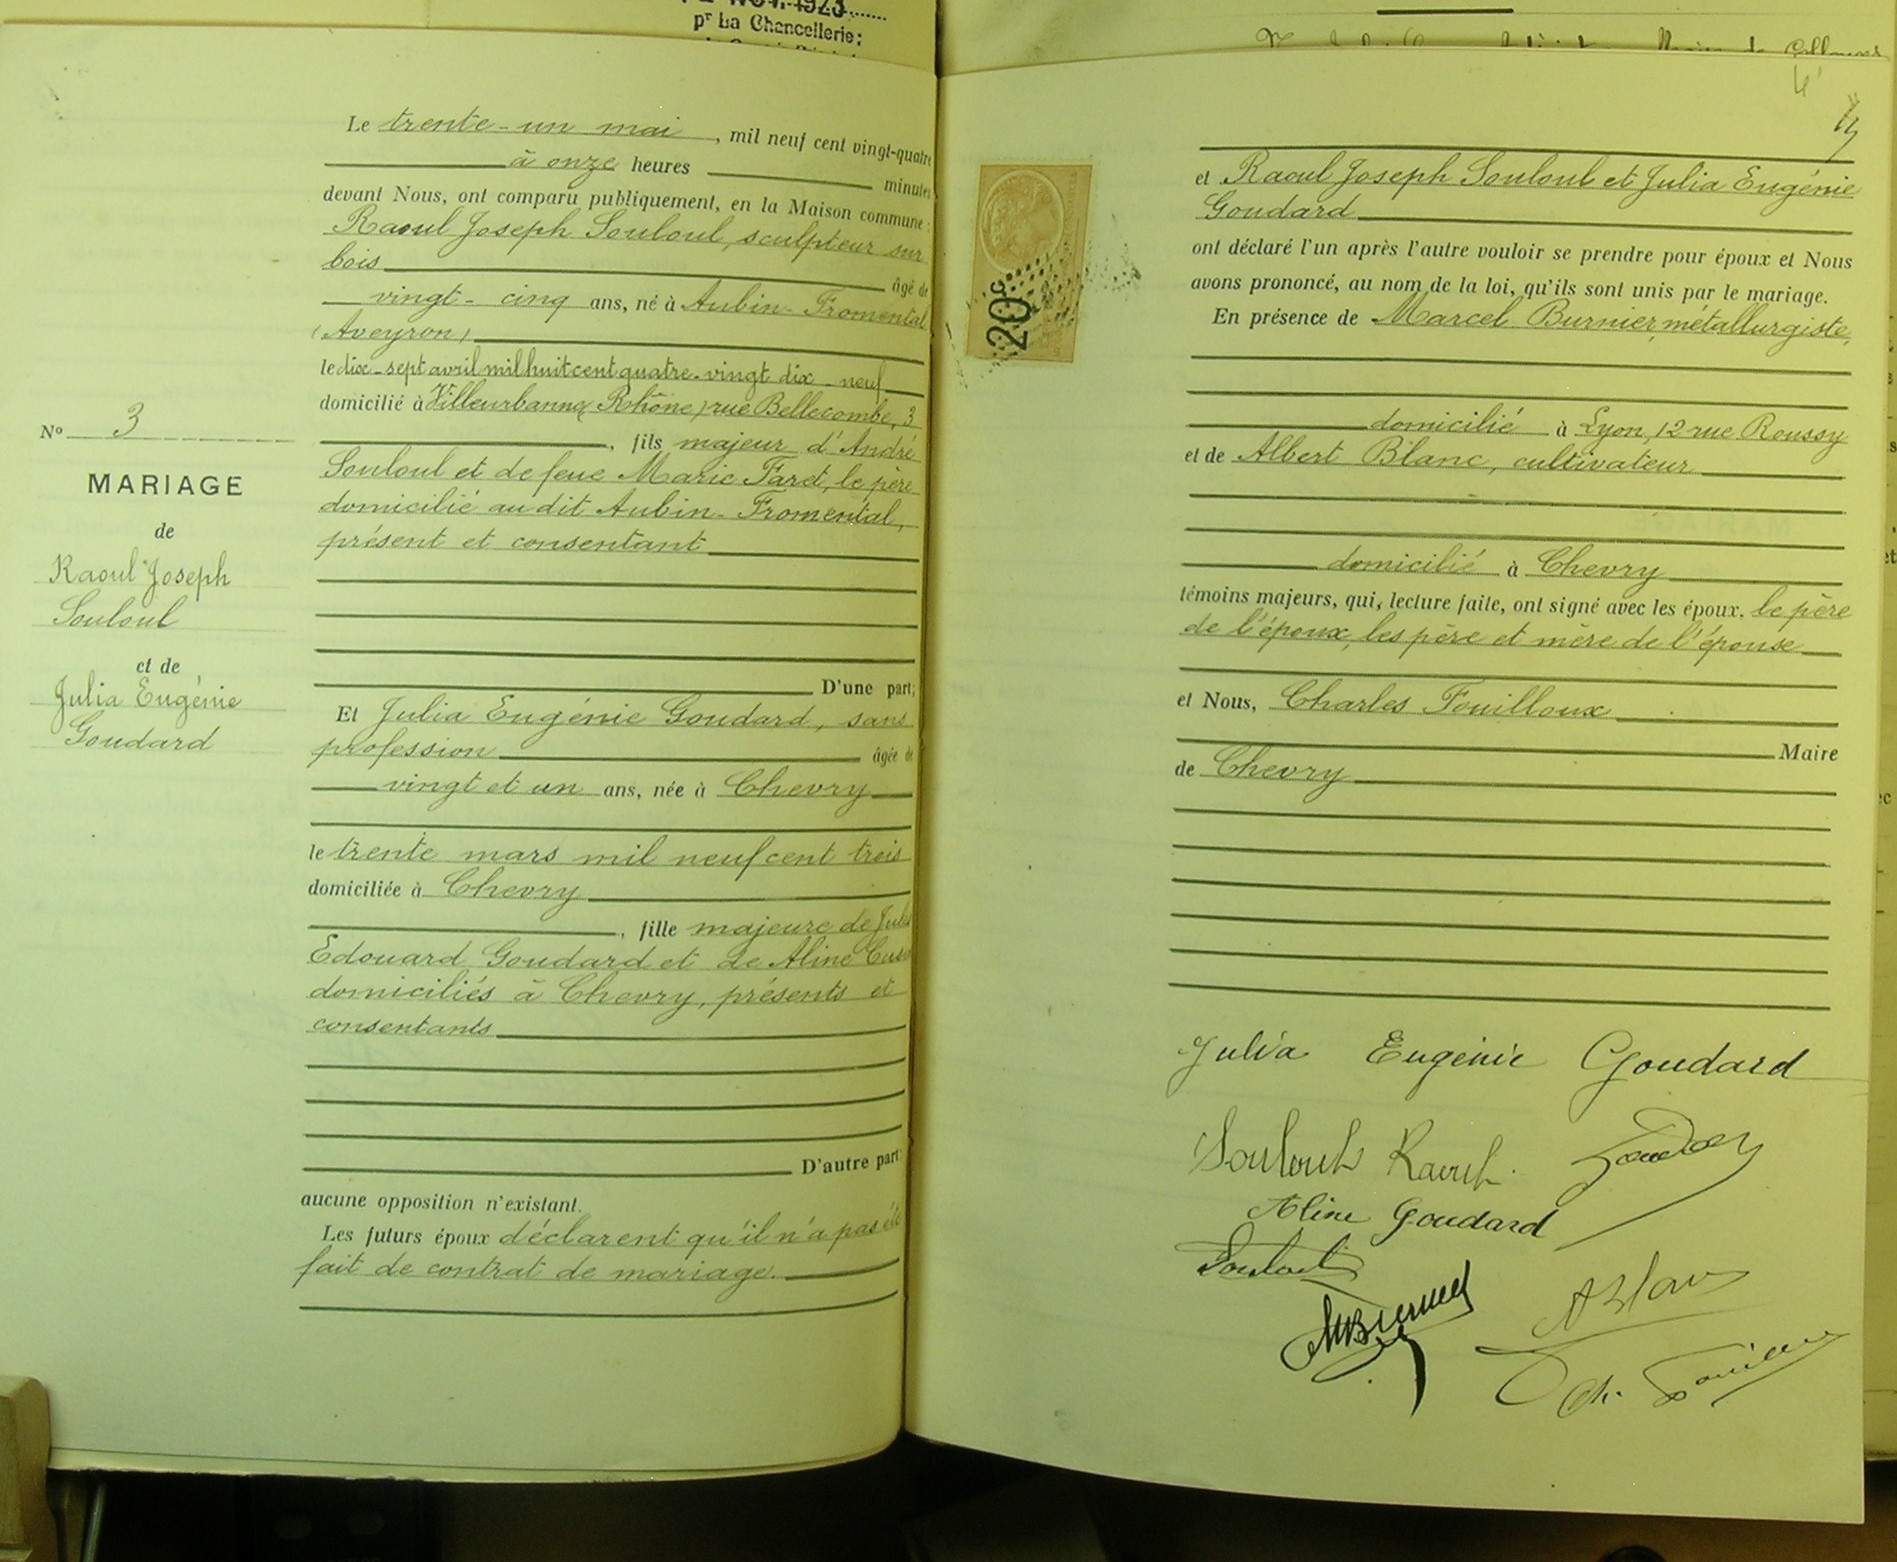 NOV. 1923
pr La Chancellerie:
Nº 3
MARIAGE
de
Raoul Joseph
Souloul
et de
Julia Eugénie
Goudard
Le trente-un mai, mil neuf cent vingt-quatre
à onze heures minutes
devant Nous, ont comparu publiquement, en la Maison commune :
Raoul Joseph Souloul, sculpteur sur
bois âgé de
vingt-cinq ans, né à Aubin-Fromental
(Aveyron)
le dix-sept avril mil huit cent quatre-vingt dix-neuf
domicilié à Villeurbanne (Rhône) rue Bellecombe, 3
, fils majeur d'André
Souloul et de feue Marie Faret, le père
domicilié au dit Aubin-Fromental,
présent et consentant
D'une part;
Et Julia Eugénie Goudard, sans
profession âgée de
vingt et un ans, née à Chevry
le trente mars mil neuf cent trois
domiciliée à Chevry
, fille majeure de Jules
Edouard Goudard et de Aline
domiciliés à Chevry, présents et
consentants
D'autre part;
aucune opposition n'existant.
Les futurs époux déclarent qu'il n'a pas été
fait de contrat de mariage.
et Raoul Joseph Souloul et Julia Eugénie
Goudard
ont déclaré l'un après l'autre vouloir se prendre pour époux et Nous
avons prononcé, au nom de la loi, qu'ils sont unis par le mariage.
En présence de Marcel Burnier, métallurgiste,
domicilié à Lyon, 12 rue Roussy
et de Albert Blanc, cultivateur
domicilié à Chevry
témoins majeurs, qui, lecture faite, ont signé avec les époux, le père
de l'époux, les père et mère de l'épouse
et Nous, Charles Fouilloux
Maire
de Chevry
20c
Julia Eugénie Goudard
Souloul Raoul
Aline Goudard
Souloul
MBurnier
ABlanc
Ch. Fouilloux